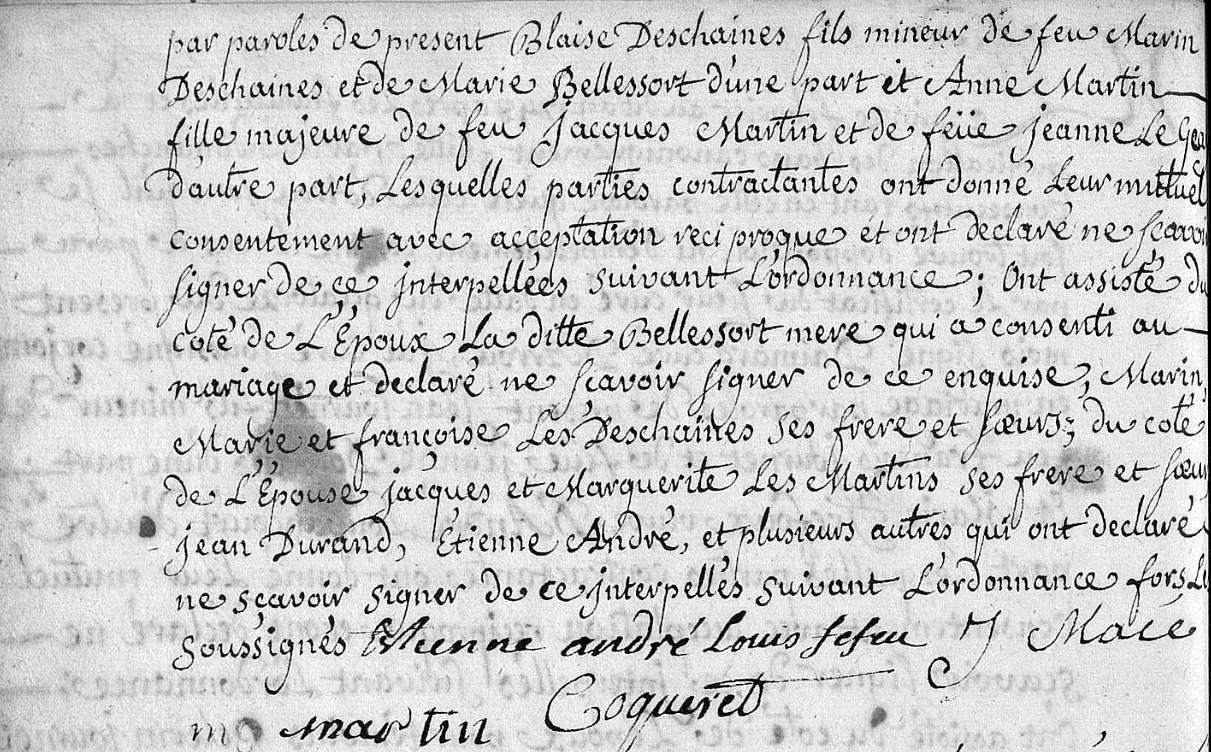 par paroles de present Blaise Deschaines fils mineur de feu Marin
Deschaines et de Marie Bellessort d'une part et Anne Martin
fille majeure de feu jacques Martin et de feüe jeanne Le
d'autre part, Lesquelles parties contractantes ont donné Leur mutuel
consentement avec acceptation reciproque et ont declaré ne scavoir
signer de ce jnterpellées suivant L'ordonnance; Ont assisté du
coté de L'Epoux La ditte Bellessort mere qui a consenti au
mariage et declaré ne scavoir signer de ce enquise, Marin,
Marie et françoise Les Deschaines ses frere et sœurs; du coté
de L'Epouse jacques et Marguerite Les Martins ses frere et sœur
jean Durand, Etienne André, et plusieurs autres qui ont declaré
ne sçavoir signer de ce jnterpellés suivant L'ordonnance fors Les
soussignés Etienne andré Louis Macé
martin Coqueret